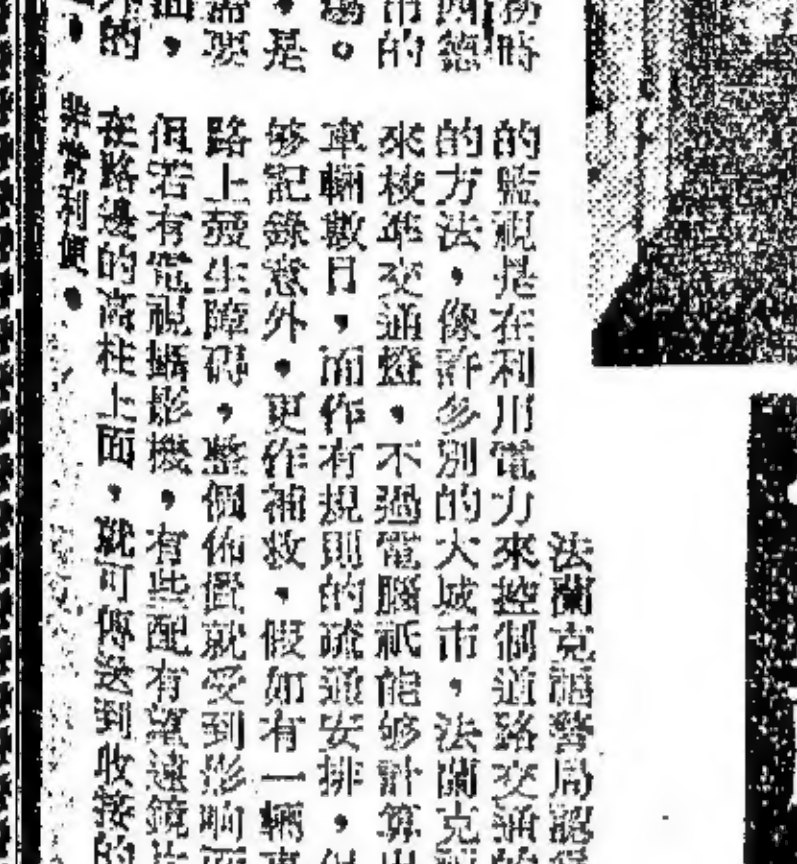 時
德
市的
場。
，是
需要
面，
的
法蘭克福警局認
的監視是在利用電力來控制道路交通的
的方法，像許多別的大城市，法蘭克
來校準交通燈，不過電腦祇能够計算出
車輛數目，而作有規則的疏通安排，但
够記錄意外，更作補救，假如有一輛車
路上發生障碍，整個佈置就受到影响而
但若有電視攝影機，有些配有望遠鏡片
在路邊的高柱上面，就可傳送到收接的
非常利便。